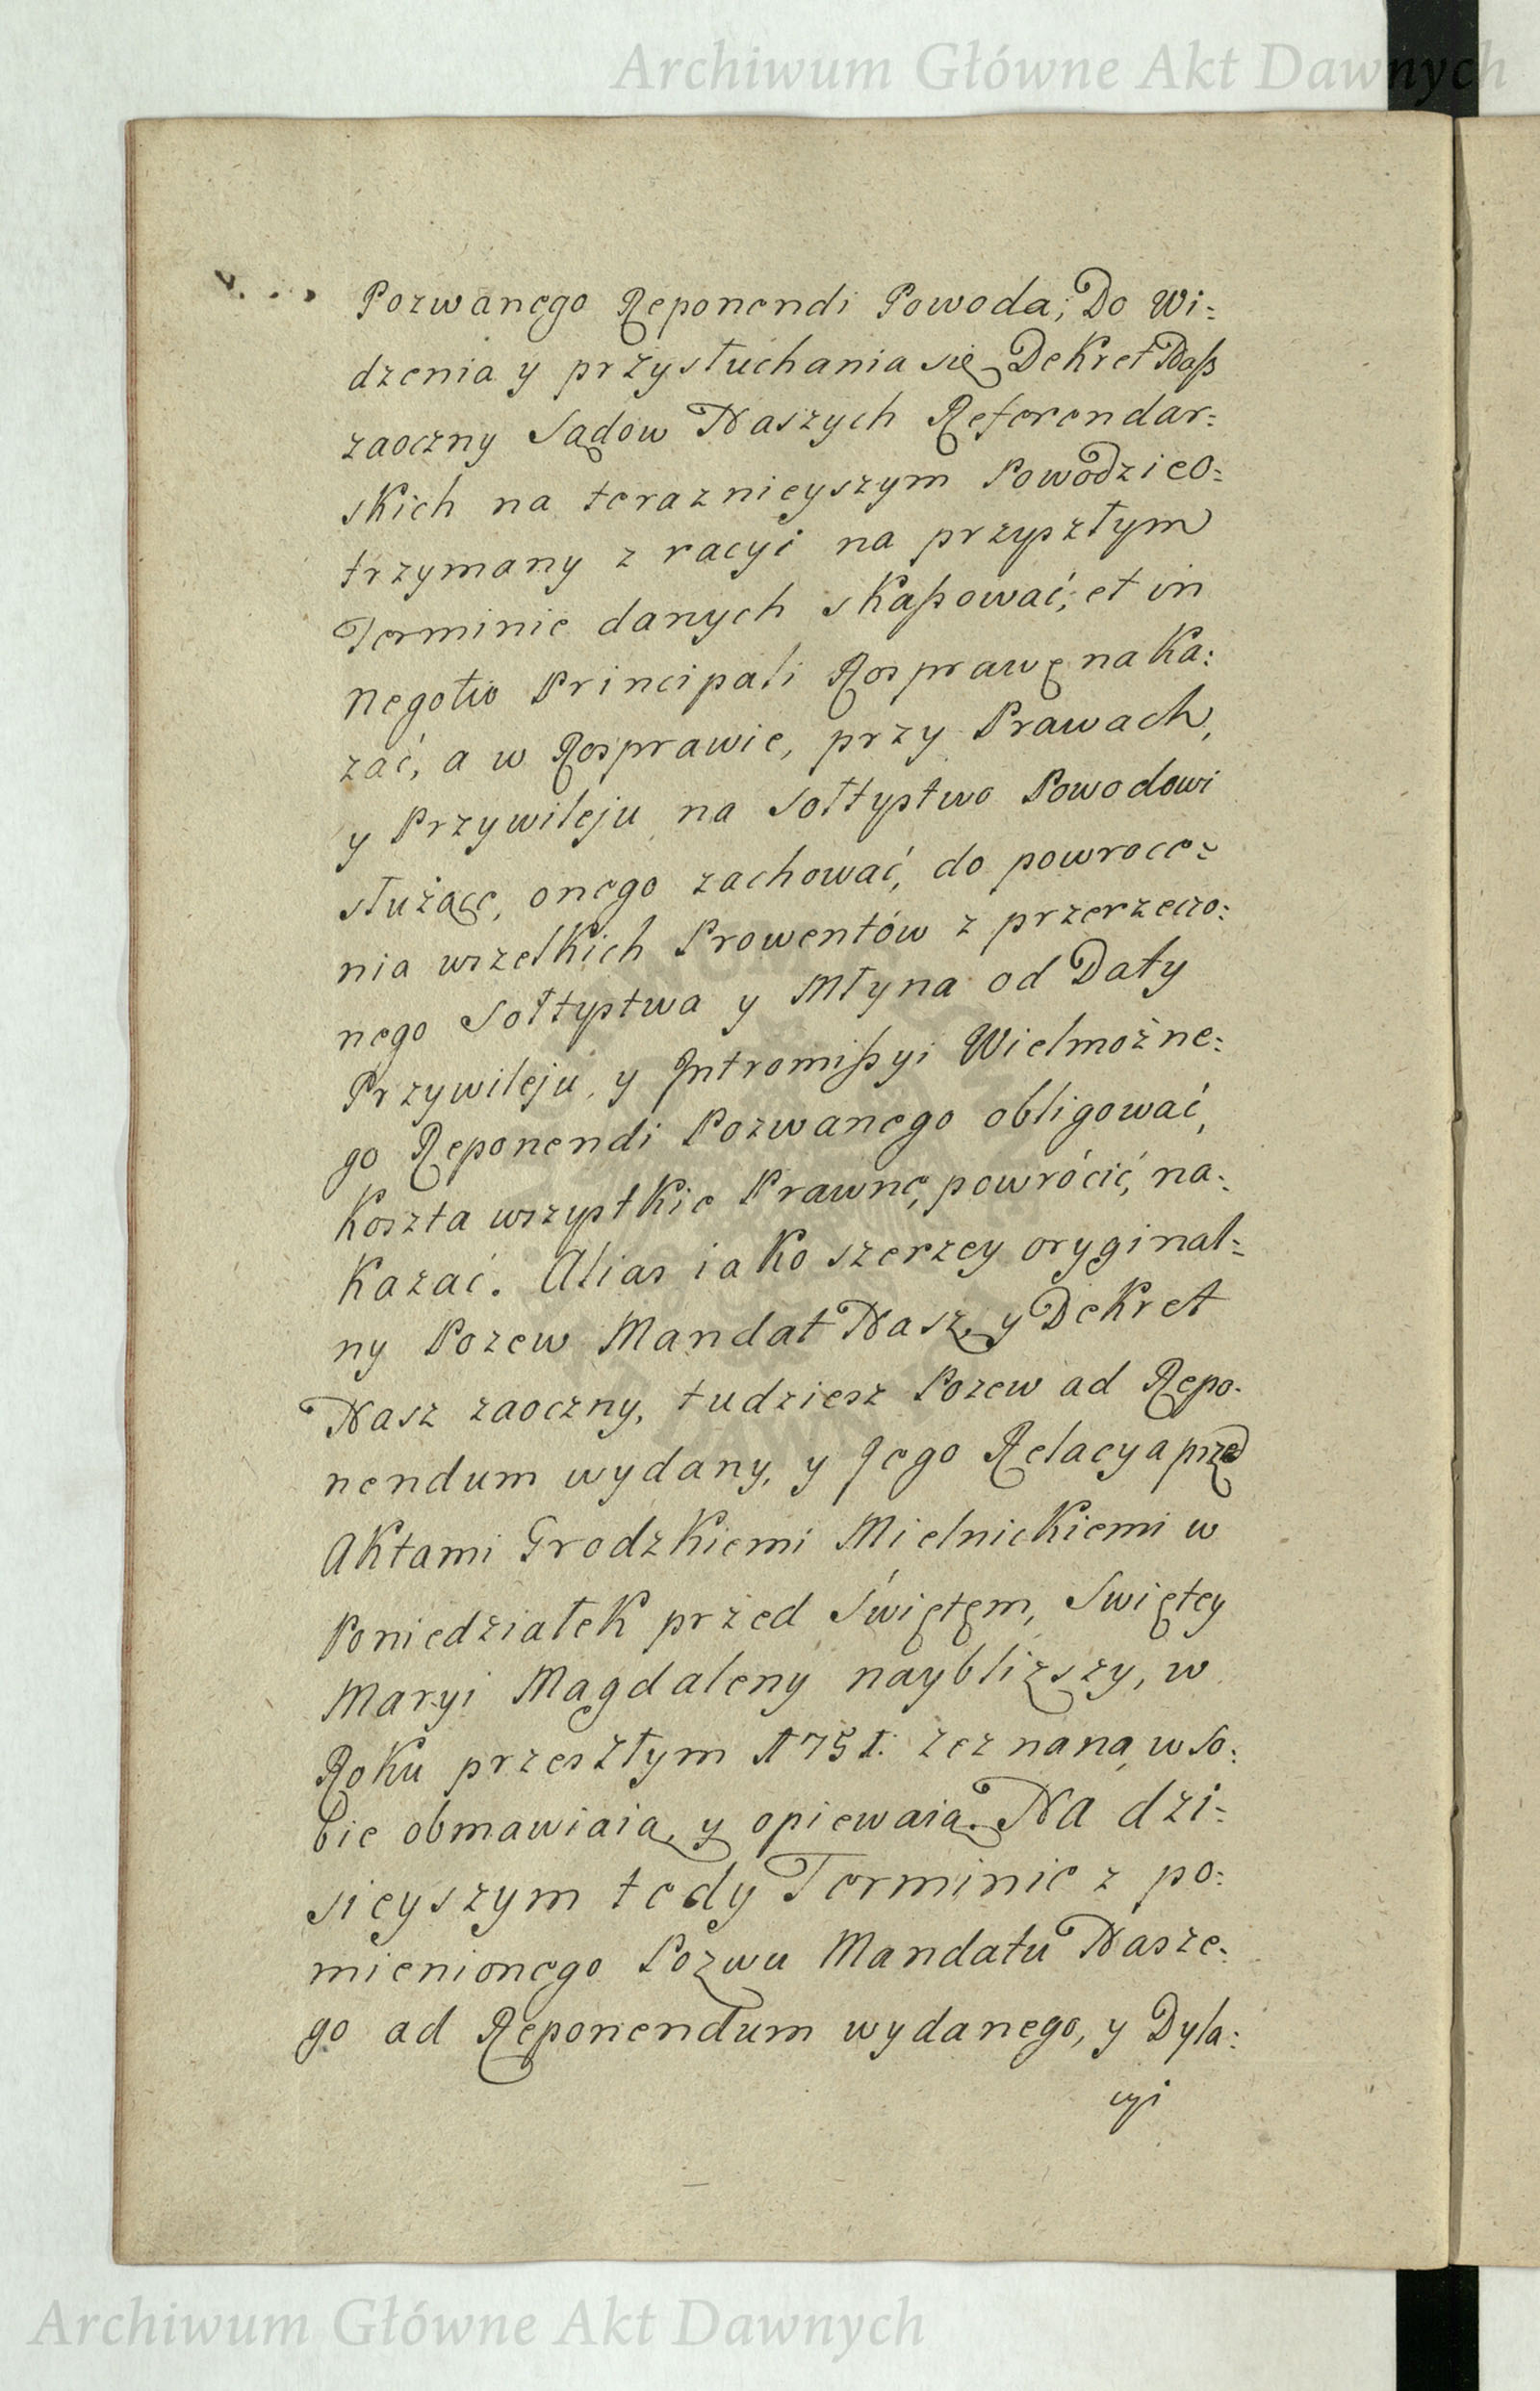 Archiwum Główne Akt Dawnych
Pozwanego Reponendi Powoda; Do Wi=
dzenia y przysłuchania się Dekret Naß
zaoczny Sądow Naszych Referendar=
skich na teraznieyszym Powodzie o=
trzymany z racyi na przyszłym
Terminie danych skaßować; et in
negotio Principali Rosprawę naka=
zać, a w Rosprawie, przy Prawach,
y Przywileju na Sołtystwo Powodowi
służące, onego zachować, do powroce=
nia wszelkich Prowentów z przerzeczo=
nego Sołtystwa y Młyna od Daty
Przywileju, y Intromißyi Wielmożne=
go Reponendi Pozwanego obligować,
Koszta wszystkie Prawne, powrócić, na=
kazać. Alias iako szerzey oryginal=
ny Pozew Mandat Nasz, y Dekret
Nasz zaoczny, tudziesz Pozew ad Repo=
nendum wydany, y Jego Relacya przed
Aktami Grodzkiemi Mielnickiemi w
Poniedziałek przed Świętęm, Swiętey
Maryi Magdaleny nayblizszy, w
Roku przeszłym 1751. zeznana, w so=
bie obmawiaią, y opiewaią. Na dzi=
sieyszym tedy Terminie z po=
mienionego Pozwu Mandatu Nasze=
go ad Reponendum wydanego, y Dyla=
cyi
Archiwum Główne Akt Dawnych